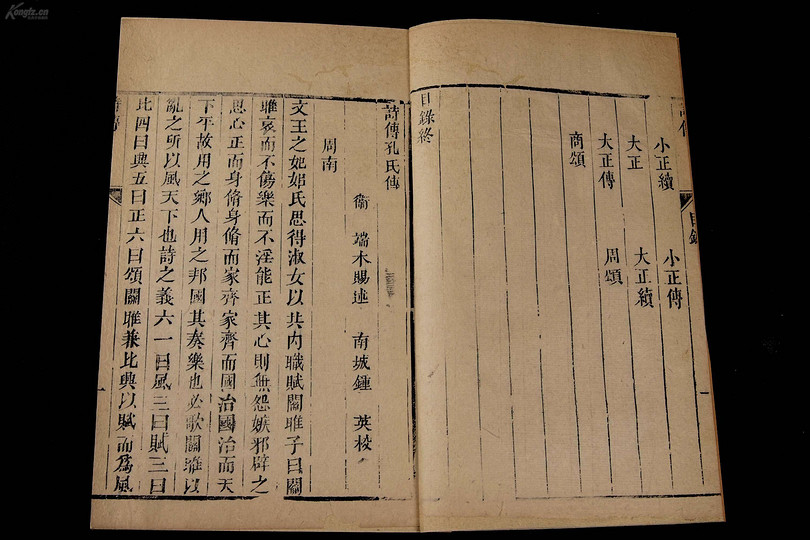 Kongfz.cn
目錄
一
小正續 小正傳
大正 大正續
大正傳 周頌
商頌
目錄終
詩傳孔氏傳
衞 端木賜述 南城鍾 英校
周南
文王之妃姒氏思得淑女以共內職賦關雎子曰關
雎哀而不傷樂而不淫能正其心則無怨嫉邪辟之
思心正而身脩身脩而家齊家齊而國治國治而天
下平故用之鄉人用之邦國其奏樂也必歌關雎以
亂之所以風天下也詩之義六一曰風二曰賦三曰
比四曰興五曰正六曰頌關雎兼比興以賦而爲風
一